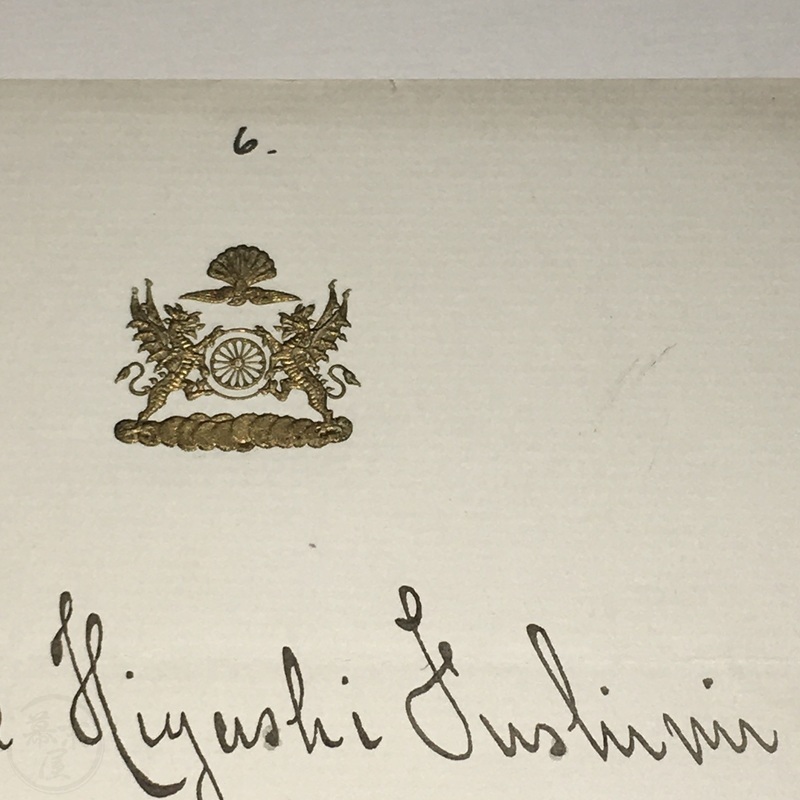 6.
Higashi Fushimi